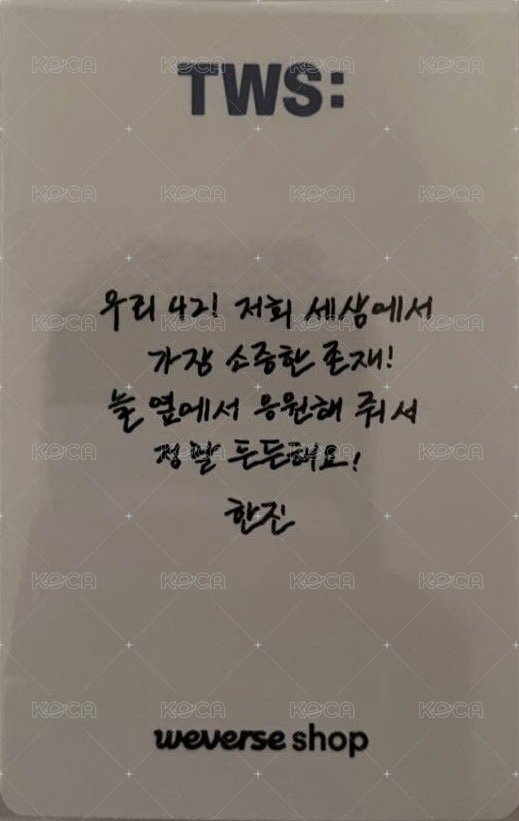 TWS:
우리 42! 저희 세상에서
가장 소중한 존재!
늘 옆에서 응원해 줘서
정말 든든해요!
한진
weverse shop
KOCA